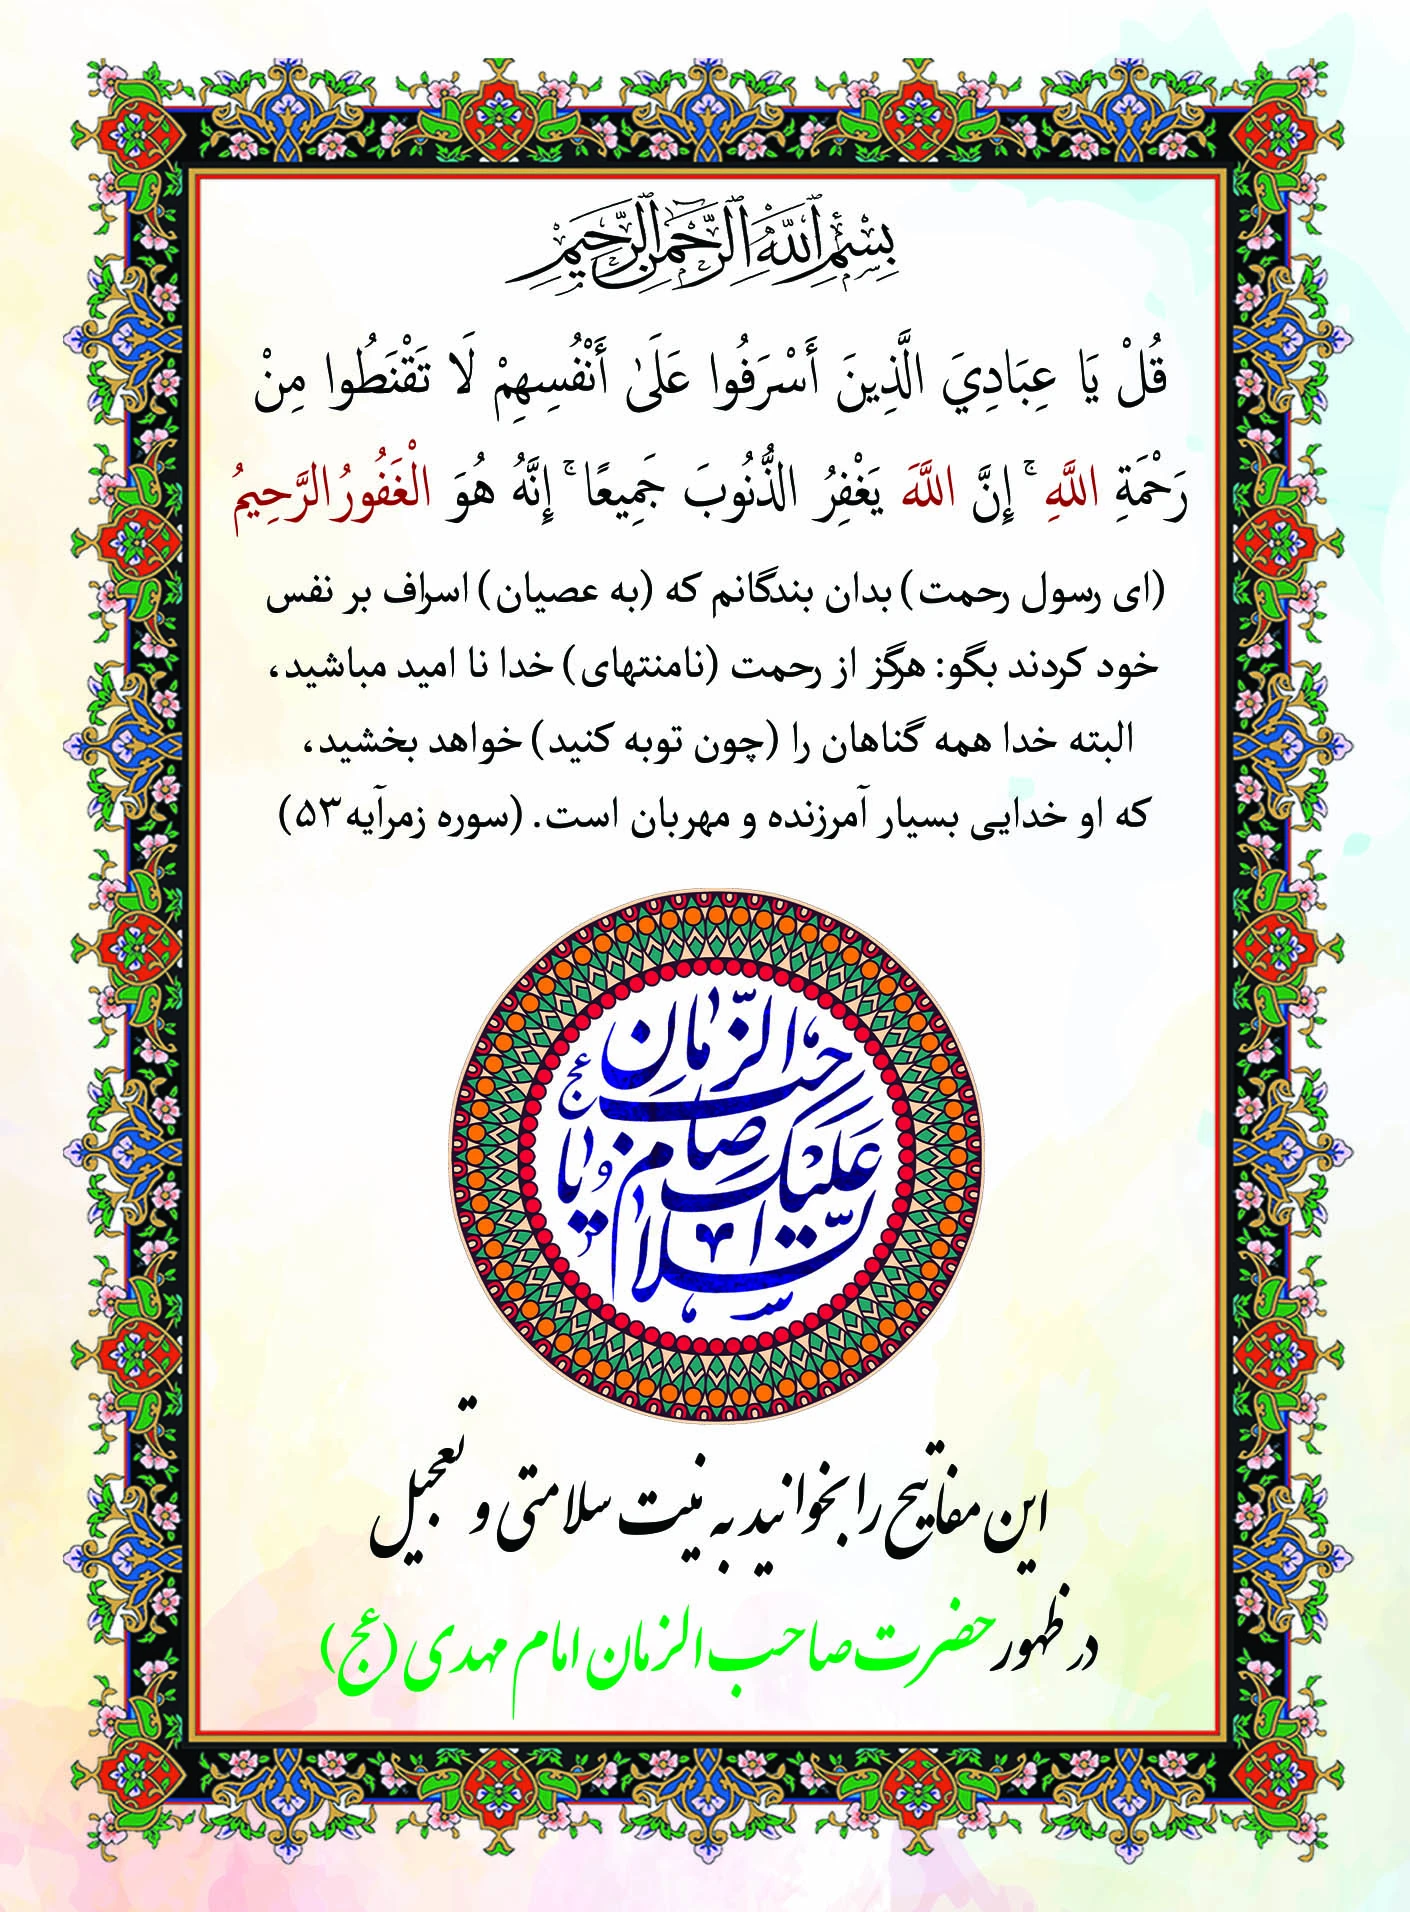 بِسْمِ ٱللَّهِ ٱلرَّحْمَٰنِ ٱلرَّحِيمِ
قُلْ يَا عِبَادِيَ الَّذِينَ أَسْرَفُوا عَلَىٰ أَنْفُسِهِمْ لَا تَقْنَطُوا مِنْ
رَحْمَةِ اللَّهِ ۚ إِنَّ اللَّهَ يَغْفِرُ الذُّنُوبَ جَمِيعًا ۚ إِنَّهُ هُوَ الْغَفُورُ الرَّحِيمُ
(ای رسول رحمت) بدان بندگانم که (به عصیان) اسراف بر نفس
خود کردند بگو: هرگز از رحمت (نامنتهای) خدا نا امید مباشید،
البته خدا همه گناهان را (چون توبه کنید) خواهد بخشید،
که او خدایی بسیار آمرزنده و مهربان است. (سوره زمرآیه ۵۳)
السّلام علیک یا صاحب الزّمان عج
این مفاتیح را بخوانید به نیت سلامتی و تعجیل
در ظهور حضرت صاحب الزمان امام مهدی (عج)